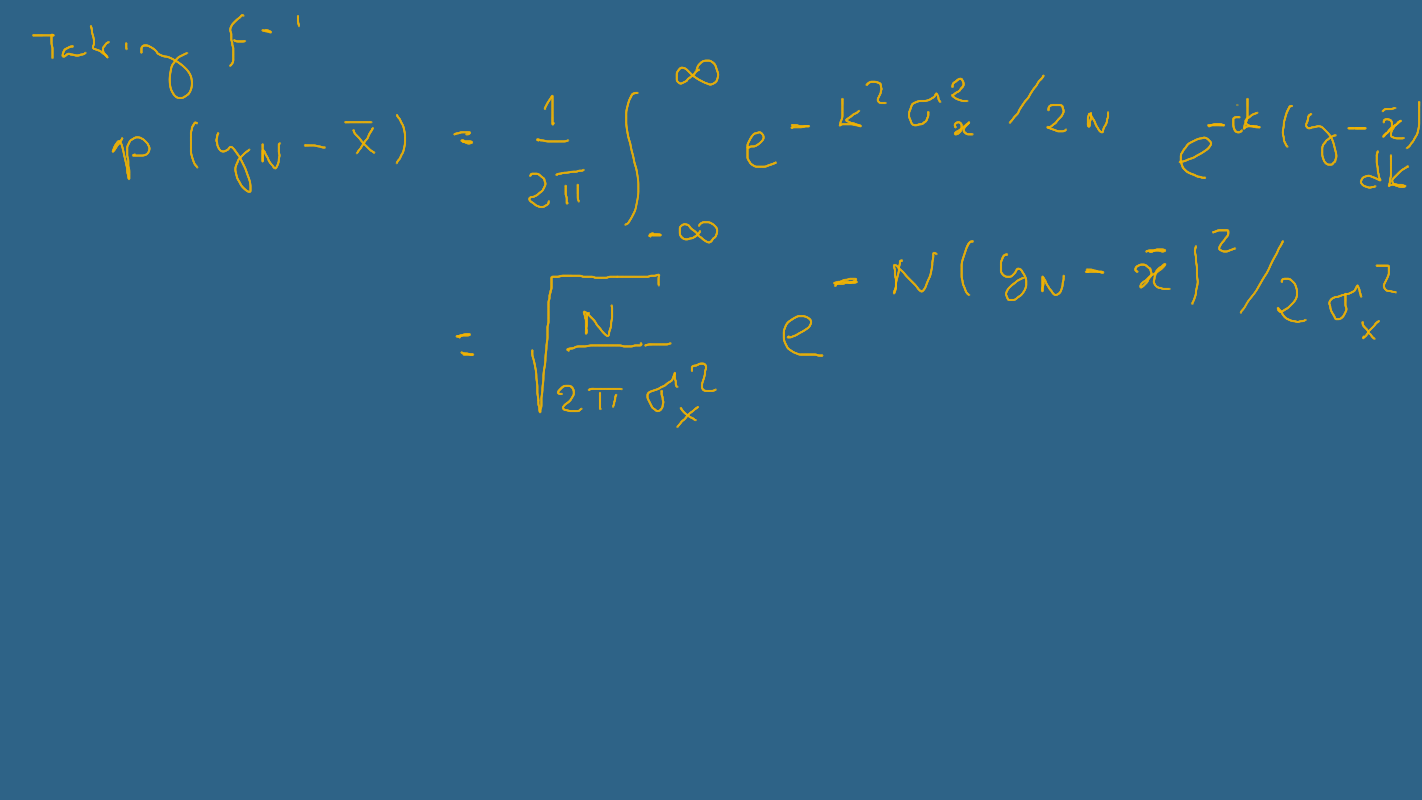 Taking F⁻¹
p (y_N - x̄) = 1/2π ∫_{-∞}^{∞} e^{-k² σ_x² / 2N} e^{-ik(y - x̄)} dk
= √(N / 2π σ_x²) e^{-N(y_N - x̄)² / 2σ_x²}